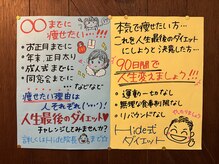 ○○までに
痩せたい…!!!
・お正月までに
・年末、正月太り
・成人式までに
・同窓会までに
痩せたい理由は
人それぞれ(・・)!
人生最後のダイエット♥
チャレンジしてみませんか?
本気で痩せたい方…
これを人生最後のダイエット
にしようと決意した方…
90日間で
人生変えましょう!!!
・運動一切なし
・無理な食事制限なし
・リバウンドなし
Hide式
ダイエット